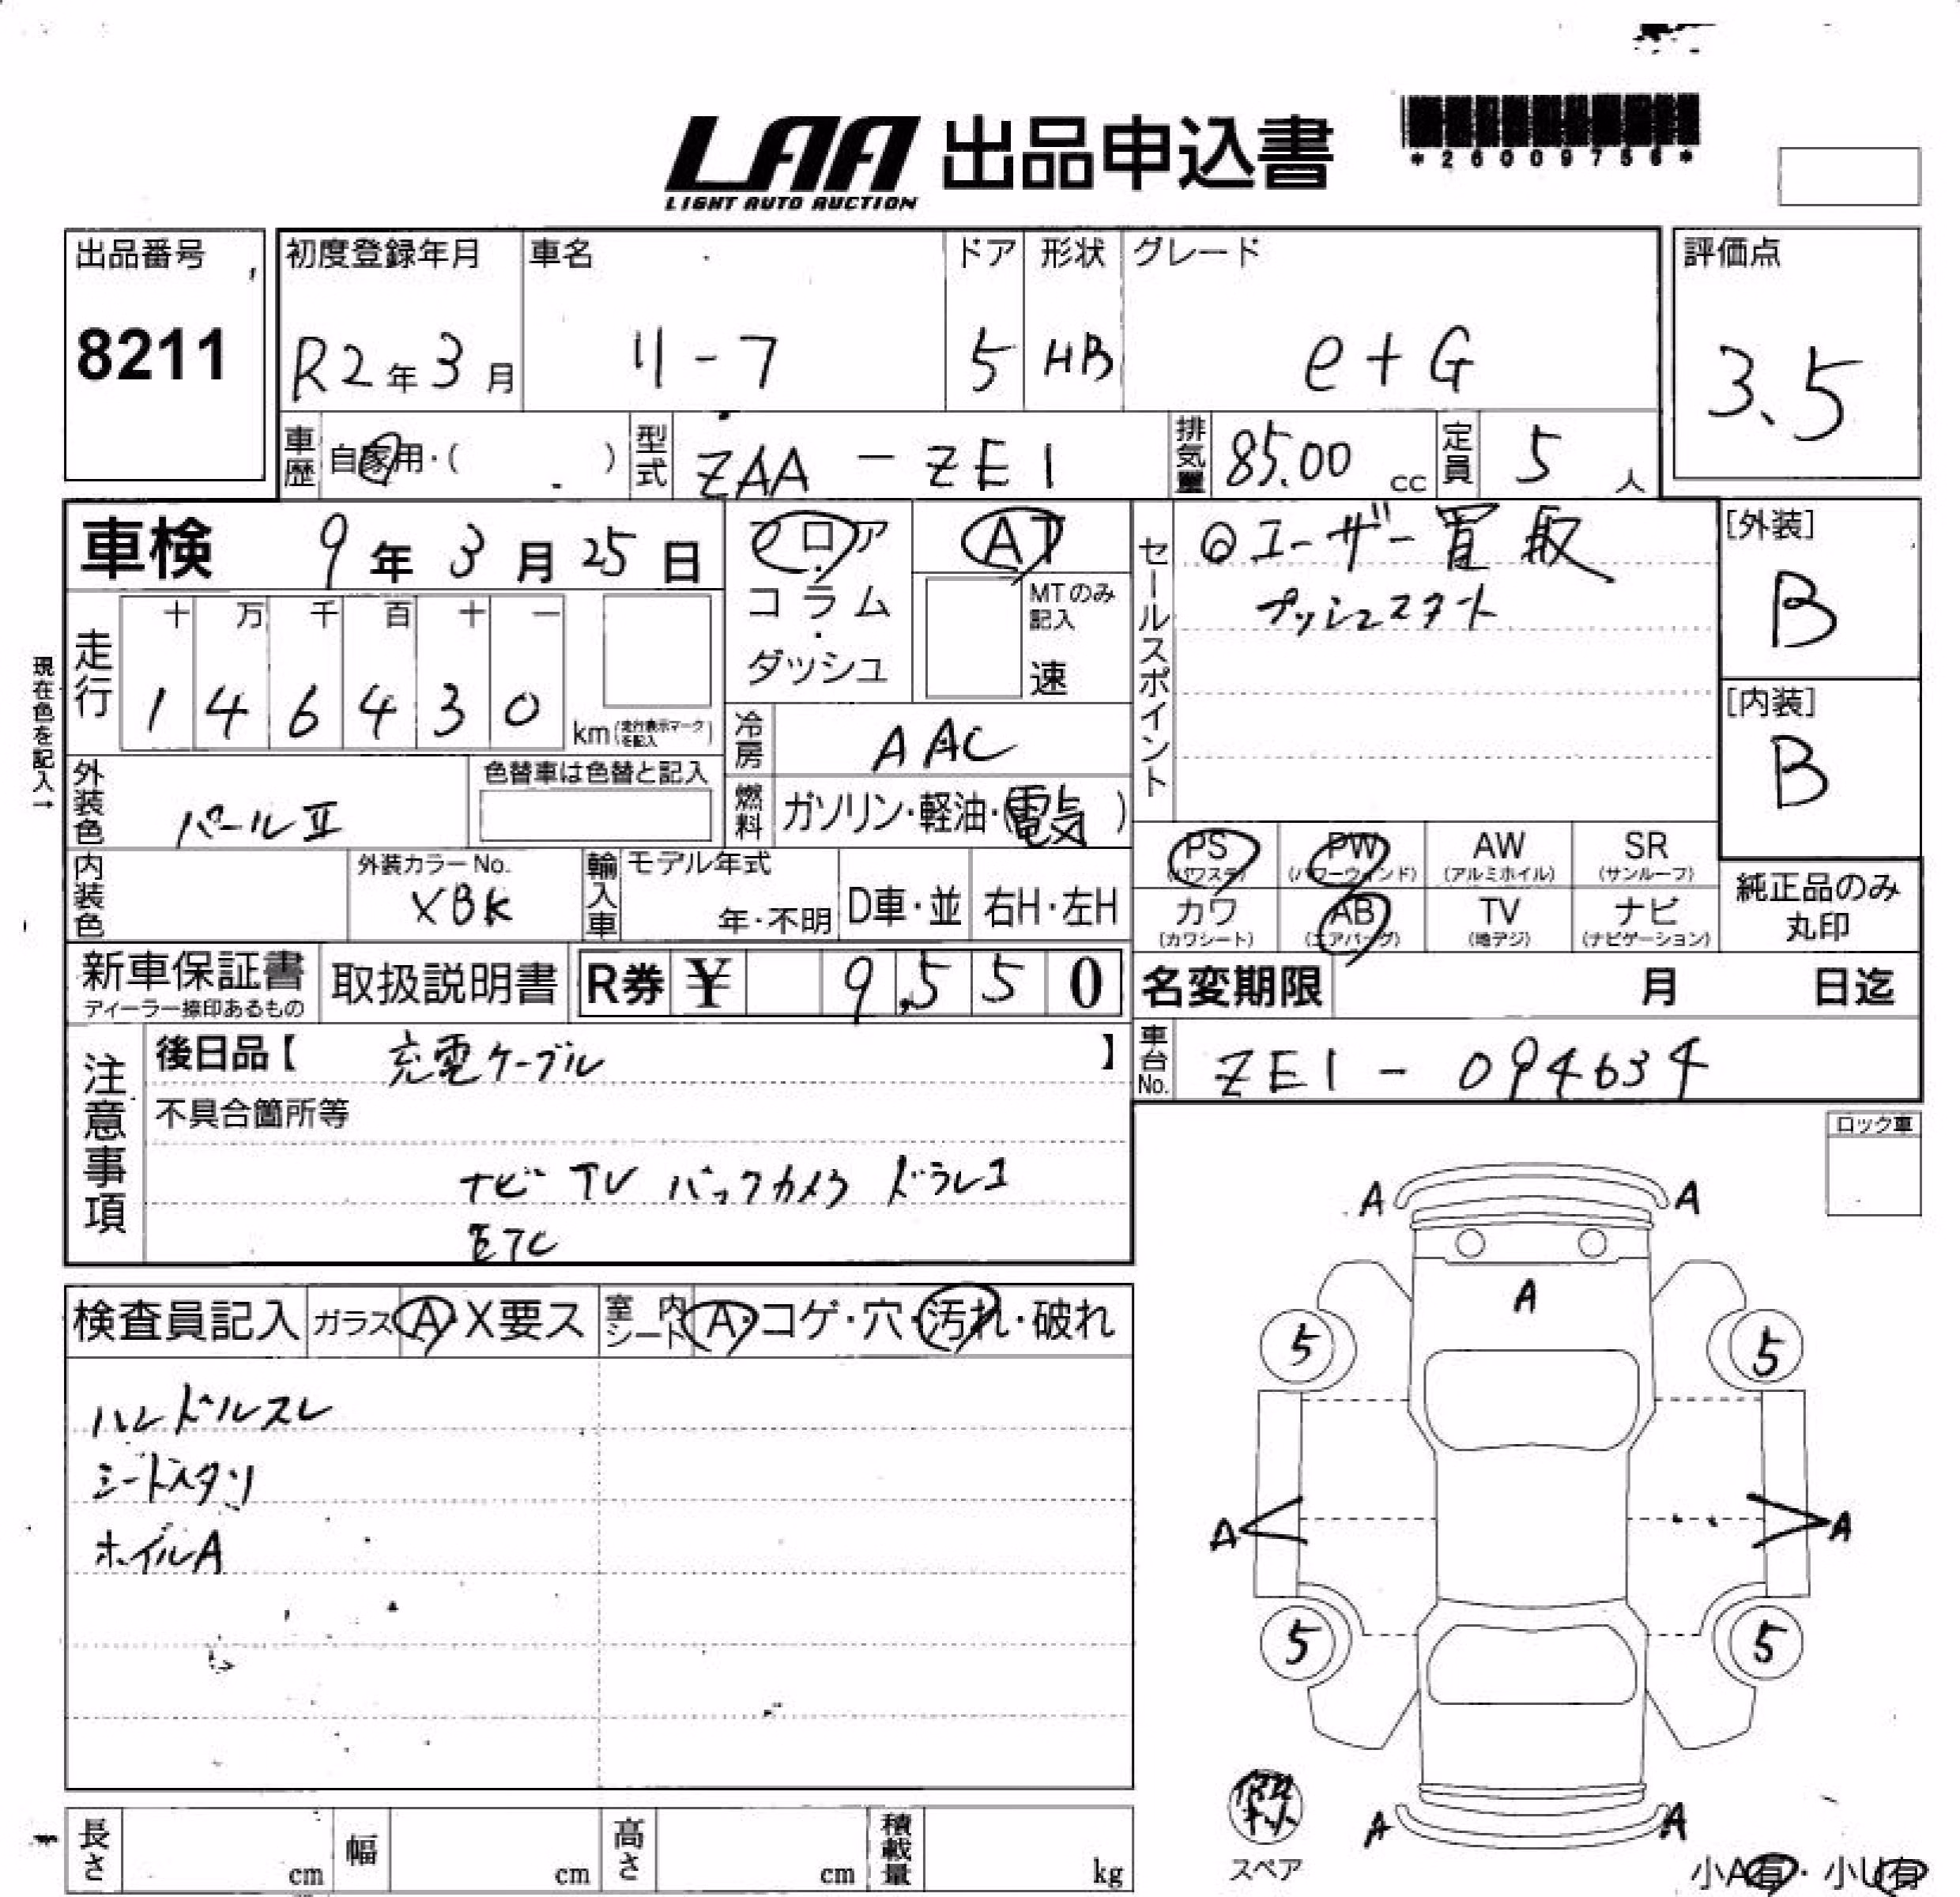 LAA 出品申込書
LIGHT AUTO AUCTION
*26009756*
出品番号
8211
初度登録年月
R2年3月
車名
リーフ
ドア
5
形状
HB
グレード
e+G
評価点
3.5
車歴 自家用・( )
型式 ZAA - ZE1
排気量 85.00 cc
定員 5 人
車検 9年3月25日
フロア
コラム
・
ダッシュ
AT
MTのみ記入
速
セールスポイント
◎ユーザー買取
プッシュスタート
[外装]
B
[内装]
B
現在色を記入→
走行
十 万 千 百 十 一
1 4 6 4 3 0
km (走行表示マークを記入)
冷房 AAC
燃料 ガソリン・軽油・(電気)
外装色 パールⅡ
色替車は色替と記入
内装色
外装カラーNo.
XBK
輸入車
モデル年式
年・不明
D車・並
右H・左H
PS (パワステ)
PW (パワーウィンド)
AW (アルミホイル)
SR (サンルーフ)
カワ (カワシート)
AB (エアバッグ)
TV (地デジ)
ナビ (ナビゲーション)
純正品のみ
丸印
新車保証書
ディーラー捺印あるもの
取扱説明書
R券 ¥ 9,550
名変期限 月 日迄
車台No. ZE1 - 094634
注意事項
後日品【 充電ケーブル 】
不具合箇所等
ナビ TV バックカメラ ドラレコ
ETC
ロック車
検査員記入
ガラス A・X要ス
室内シート A・コゲ・穴・汚れ・破れ
ハンドルスレ
シートスタリ
ホイルA
A A
A
5 5
A A
5 5
A A
スペア
小A有・小U有
長さ cm
幅 cm
高さ cm
積載量 kg